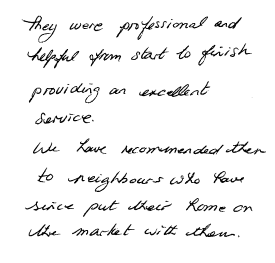 They were professional and
helpful from start to finish
providing an excellent
service.
We have recommended them
to neighbours who have
since put their home on
the market with them.